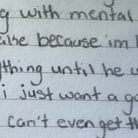 g with mental
because im
thing until he
i just want a
can't even get